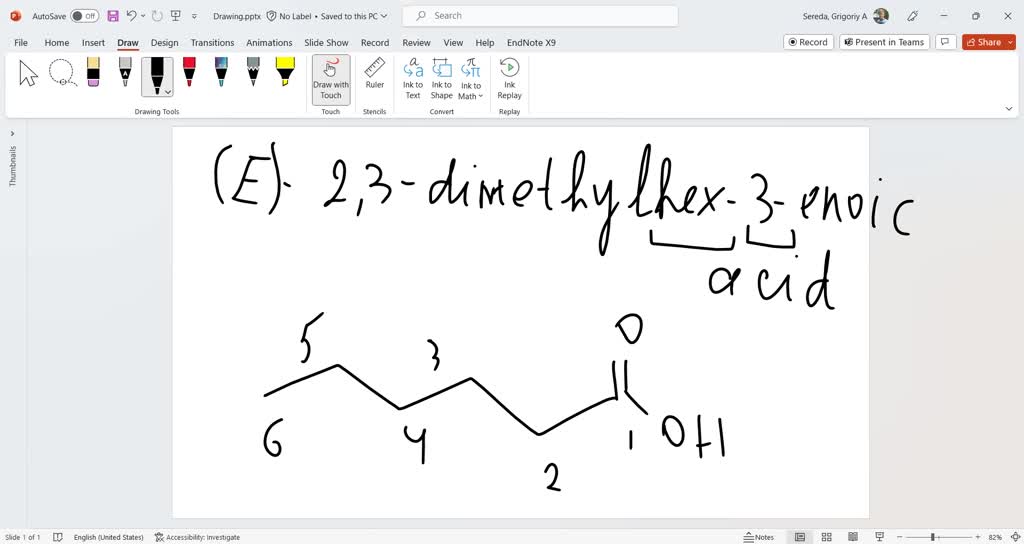 AutoSave Off Drawing.pptx No Label • Saved to this PC Search Sereda, Grigoriy A
File Home Insert Draw Design Transitions Animations Slide Show Record Review View Help EndNote X9 Record Present in Teams Share
Draw with Touch
Ruler
Ink to Text
Ink to Shape
Ink to Math
Ink Replay
Drawing Tools Touch Stencils Convert Replay
Thumbnails
(E)- 2,3-dimethylhex-3-enoic
acid
5 3 O
6 4 2 1 OH
Slide 1 of 1 English (United States) Accessibility: Investigate Notes 82%